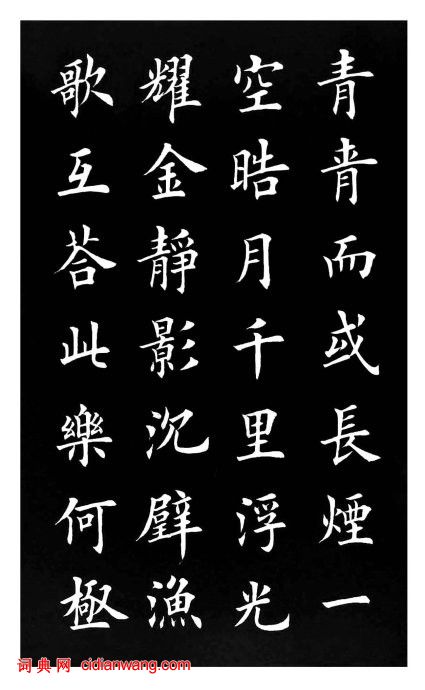 青青而或長煙一
空皓月千里浮光
耀金靜影沉璧漁
歌互荅此樂何極
词典网 cidianwang.com